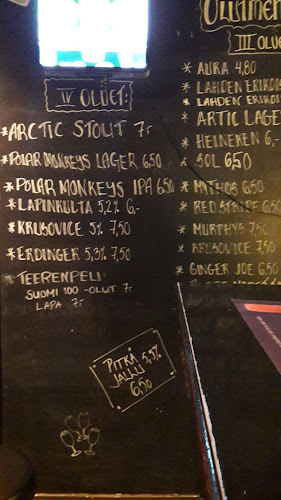 IV OLUET:
*ARCTIC STOUT 7,-
*POLAR MONKEYS LAGER 6,50
*POLAR MONKEYS IPA 6,50
*LAPINKULTA 5,2% 6,-
*KRUSOVICE 5% 7,50
*ERDINGER 5,3% 7,50
*TEERENPELI
SUOMI 100 -OLUT 7,-
LAPA 7,-
PITKÄ 5,5%
JALLU
6,50
III OLUE
* AURA 4,80
* LAHDEN ERIKOI
* LAHDEN ERIKOI
* ARTIC LAGE
* HEINEKEN 6,-
* SOL 6,50
* MYTHOS 6,50
* RED STRIPE 6,50
* MURPHYS 7,50
* KRUSOVICE 7,50
* GINGER JOE 6,50